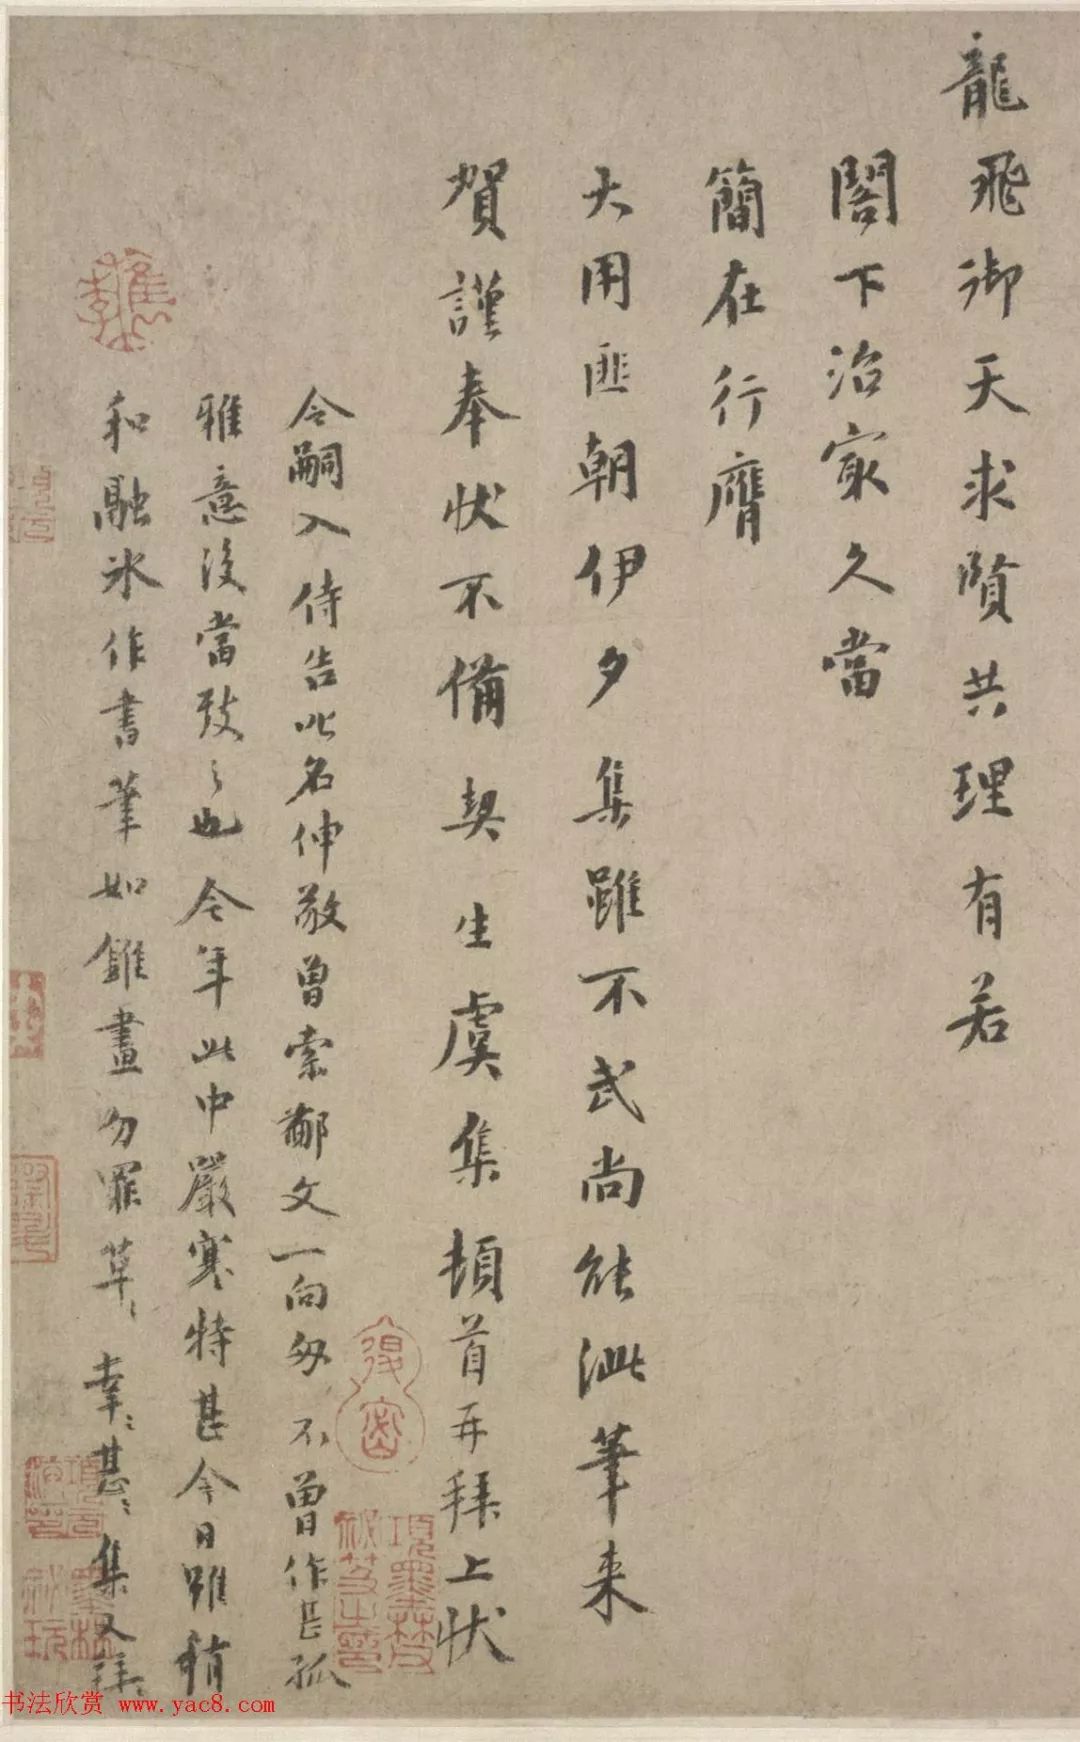 龍飛御天求賢共理有若
閣下治最久當
簡在行膺
大用匪朝伊夕集雖不武尚能泚筆来
賀謹奉状不備契生虞集頓首再拜上状
令嗣入侍告此名伸敬曽索鄱文一向匆不曽作甚孤
雅意後當致〻也今年此中嚴寒特甚今日雖稍
和融氷作書筆如錐畫勿罪草〻幸〻甚〻集又拜〻
项墨林父秘笈之印
项元汴印
墨林秘玩
书法欣赏 www.yac8.com